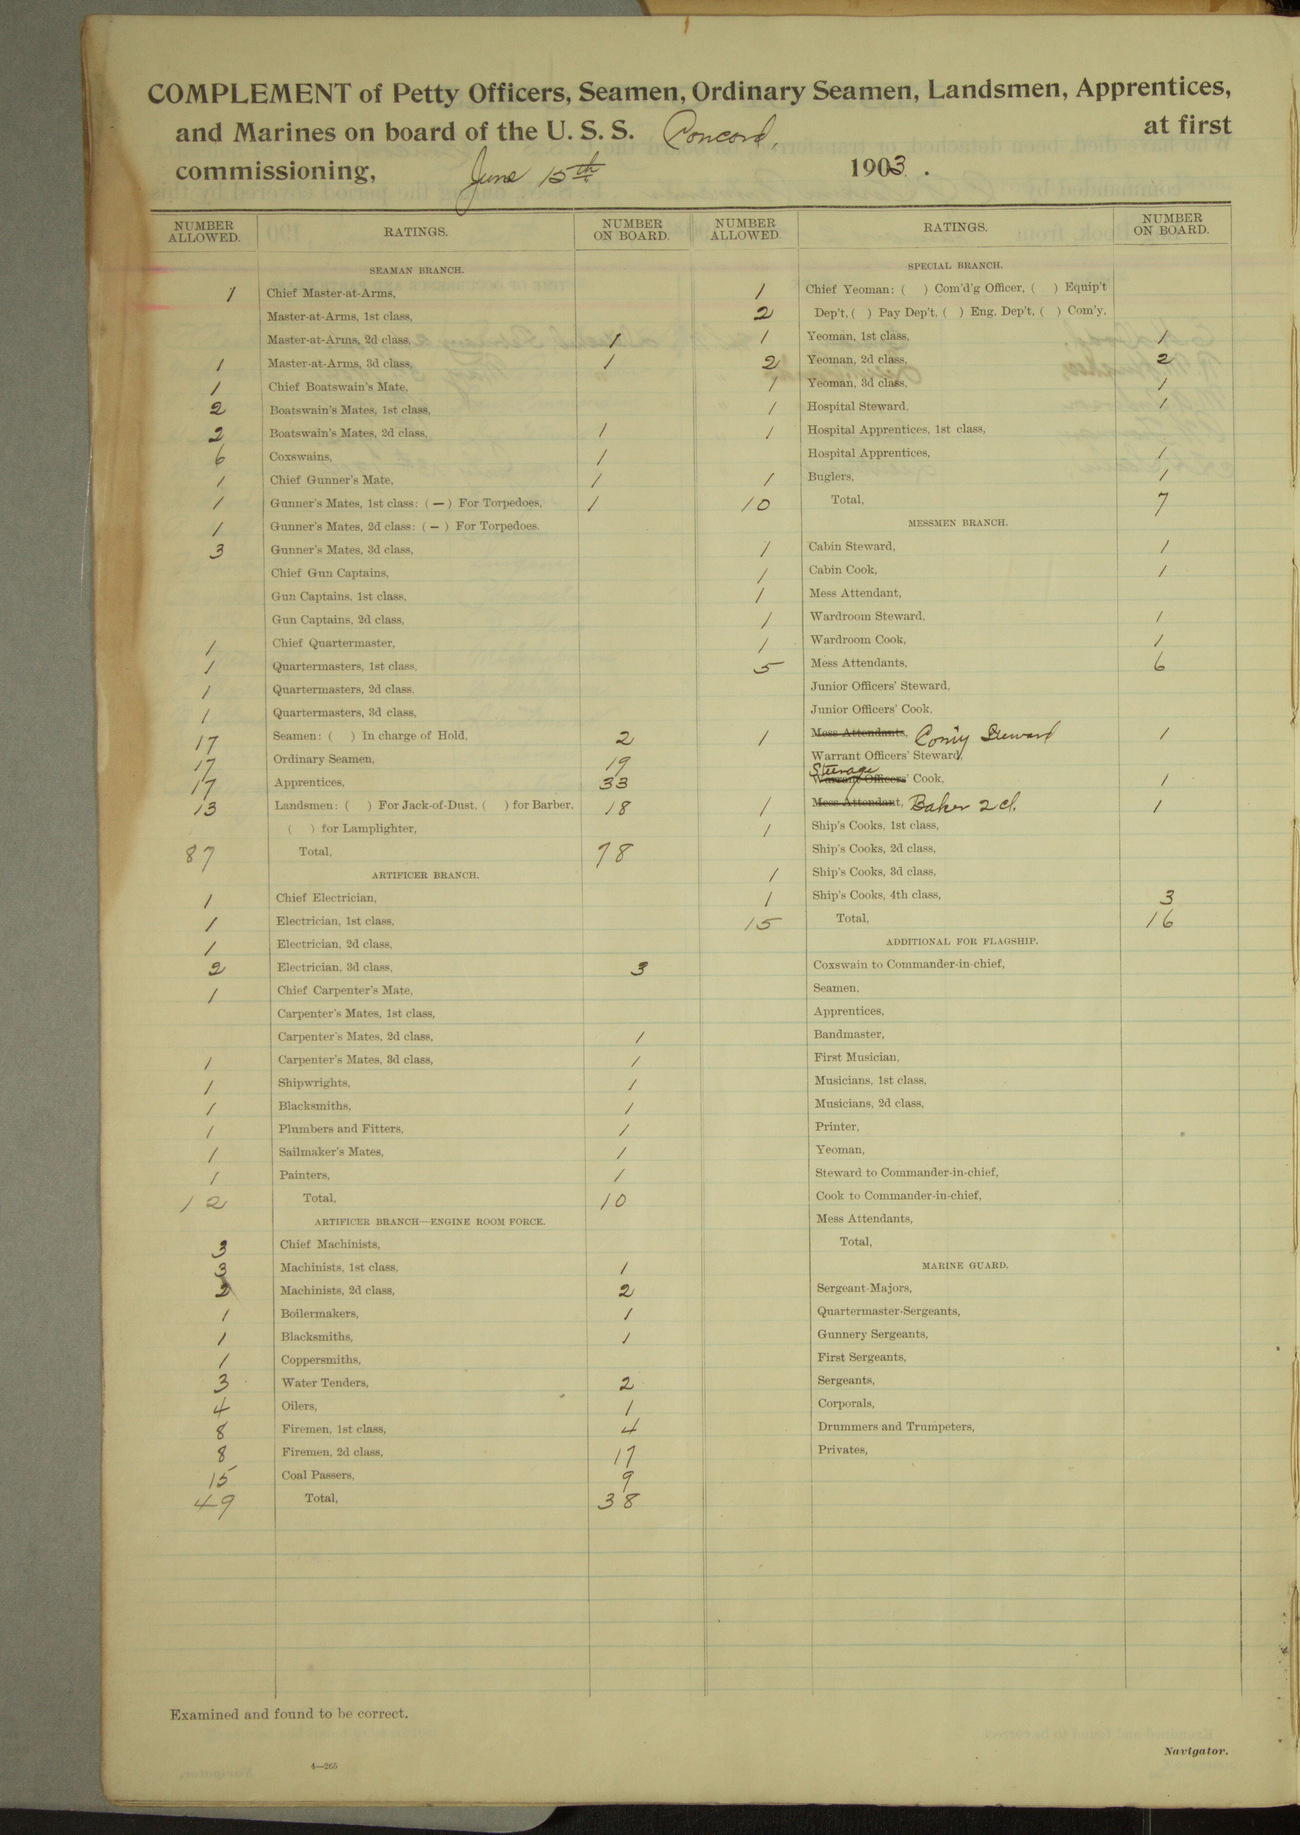 COMPLEMENT of Petty Officers, Seamen, Ordinary Seamen, Landsmen, Apprentices,
and Marines on board of the U. S. S. Concord, at first
commissioning, June 15th 1903.
NUMBER ALLOWED. RATINGS. NUMBER ON BOARD.
SEAMAN BRANCH.
1 Chief Master-at-Arms,
Master-at-Arms, 1st class,
Master-at-Arms, 2d class, 1
1 Master-at-Arms, 3d class, 1
1 Chief Boatswain's Mate,
2 Boatswain's Mates, 1st class,
2 Boatswain's Mates, 2d class, 1
6 Coxswains, 1
1 Chief Gunner's Mate, 1
1 Gunner's Mates, 1st class: ( — ) For Torpedoes, 1
1 Gunner's Mates, 2d class: ( — ) For Torpedoes.
3 Gunner's Mates, 3d class,
Chief Gun Captains,
Gun Captains, 1st class,
Gun Captains, 2d class,
1 Chief Quartermaster,
1 Quartermasters, 1st class,
1 Quartermasters, 2d class,
1 Quartermasters, 3d class,
17 Seamen: ( ) In charge of Hold, 2
17 Ordinary Seamen, 19
17 Apprentices, 33
13 Landsmen: ( ) For Jack-of-Dust, ( ) for Barber, 18
( ) for Lamplighter,
87 Total, 78
ARTIFICER BRANCH.
1 Chief Electrician,
1 Electrician, 1st class,
1 Electrician, 2d class,
2 Electrician, 3d class, 3
1 Chief Carpenter's Mate,
Carpenter's Mates, 1st class,
Carpenter's Mates, 2d class, 1
1 Carpenter's Mates, 3d class, 1
1 Shipwrights, 1
1 Blacksmiths, 1
1 Plumbers and Fitters, 1
1 Sailmaker's Mates, 1
1 Painters, 1
12 Total, 10
ARTIFICER BRANCH—ENGINE ROOM FORCE.
3 Chief Machinists,
3 Machinists, 1st class, 1
2 Machinists, 2d class, 2
1 Boilermakers, 1
1 Blacksmiths, 1
1 Coppersmiths,
3 Water Tenders, 2
4 Oilers, 1
8 Firemen, 1st class, 4
8 Firemen, 2d class, 17
15 Coal Passers, 9
49 Total, 38
NUMBER ALLOWED. RATINGS. NUMBER ON BOARD.
SPECIAL BRANCH.
1 Chief Yeoman: ( ) Com'd'g Officer, ( ) Equip't
2 Dep't, ( ) Pay Dep't, ( ) Eng. Dep't, ( ) Com'y.
1 Yeoman, 1st class, 1
2 Yeoman, 2d class, 2
1 Yeoman, 3d class, 1
1 Hospital Steward, 1
1 Hospital Apprentices, 1st class,
Hospital Apprentices, 1
1 Buglers, 1
10 Total, 7
MESSMEN BRANCH.
1 Cabin Steward, 1
1 Cabin Cook, 1
1 Mess Attendant,
1 Wardroom Steward, 1
1 Wardroom Cook, 1
5 Mess Attendants, 6
Junior Officers' Steward,
Junior Officers' Cook,
1 Mess Attendants, Com'y Steward 1
Warrant Officers' Steward,
Steerage
Warrant Officers' Cook, 1
1 Mess Attendant, Baker 2 cl. 1
1 Ship's Cooks, 1st class,
Ship's Cooks, 2d class,
1 Ship's Cooks, 3d class,
1 Ship's Cooks, 4th class, 3
15 Total, 16
ADDITIONAL FOR FLAGSHIP.
Coxswain to Commander-in-chief,
Seamen,
Apprentices,
Bandmaster,
First Musician,
Musicians, 1st class,
Musicians, 2d class,
Printer,
Yeoman,
Steward to Commander-in-chief,
Cook to Commander-in-chief,
Mess Attendants,
Total,
MARINE GUARD.
Sergeant-Majors,
Quartermaster-Sergeants,
Gunnery Sergeants,
First Sergeants,
Sergeants,
Corporals,
Drummers and Trumpeters,
Privates,
Examined and found to be correct.
Navigator.
4—265